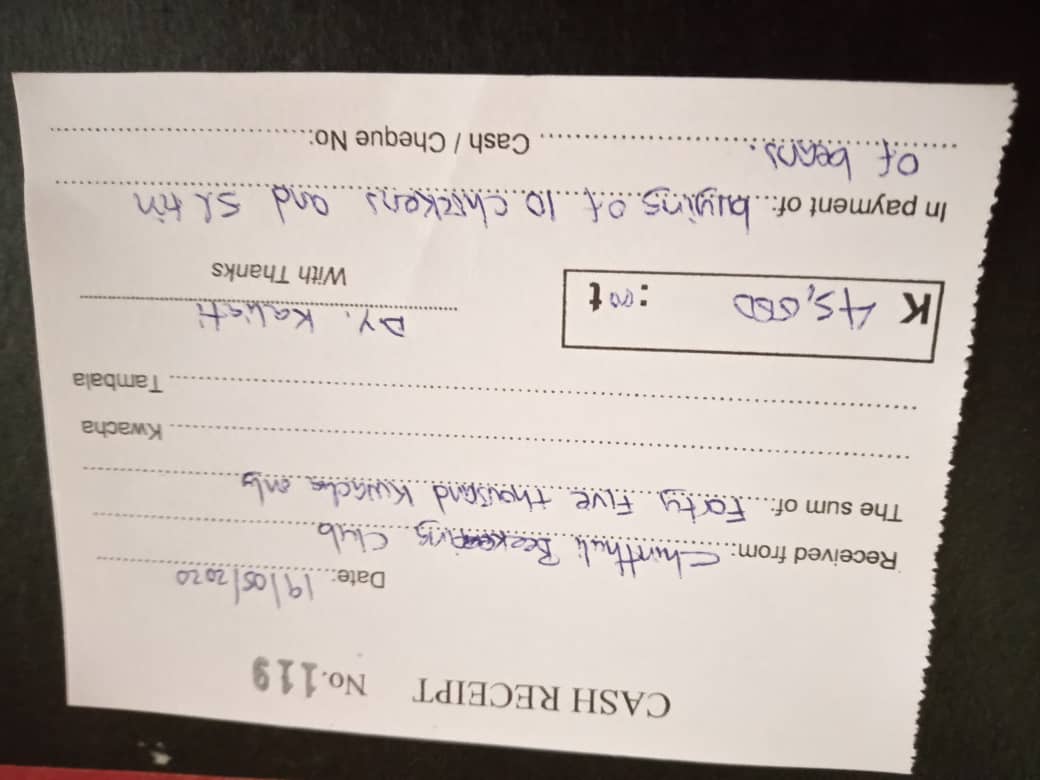 CASH RECEIPT No.119
Date: 19/05/2020
Received from: Chinthuli Beekeeping Club.
The sum of: Forty Five thousand Kwacha only
Kwacha
Tambala
K 45,000 : 00 t DY. Kaliati
With Thanks
In payment of: buying of 10 chickens and 5L tin
of beans. Cash / Cheque No: